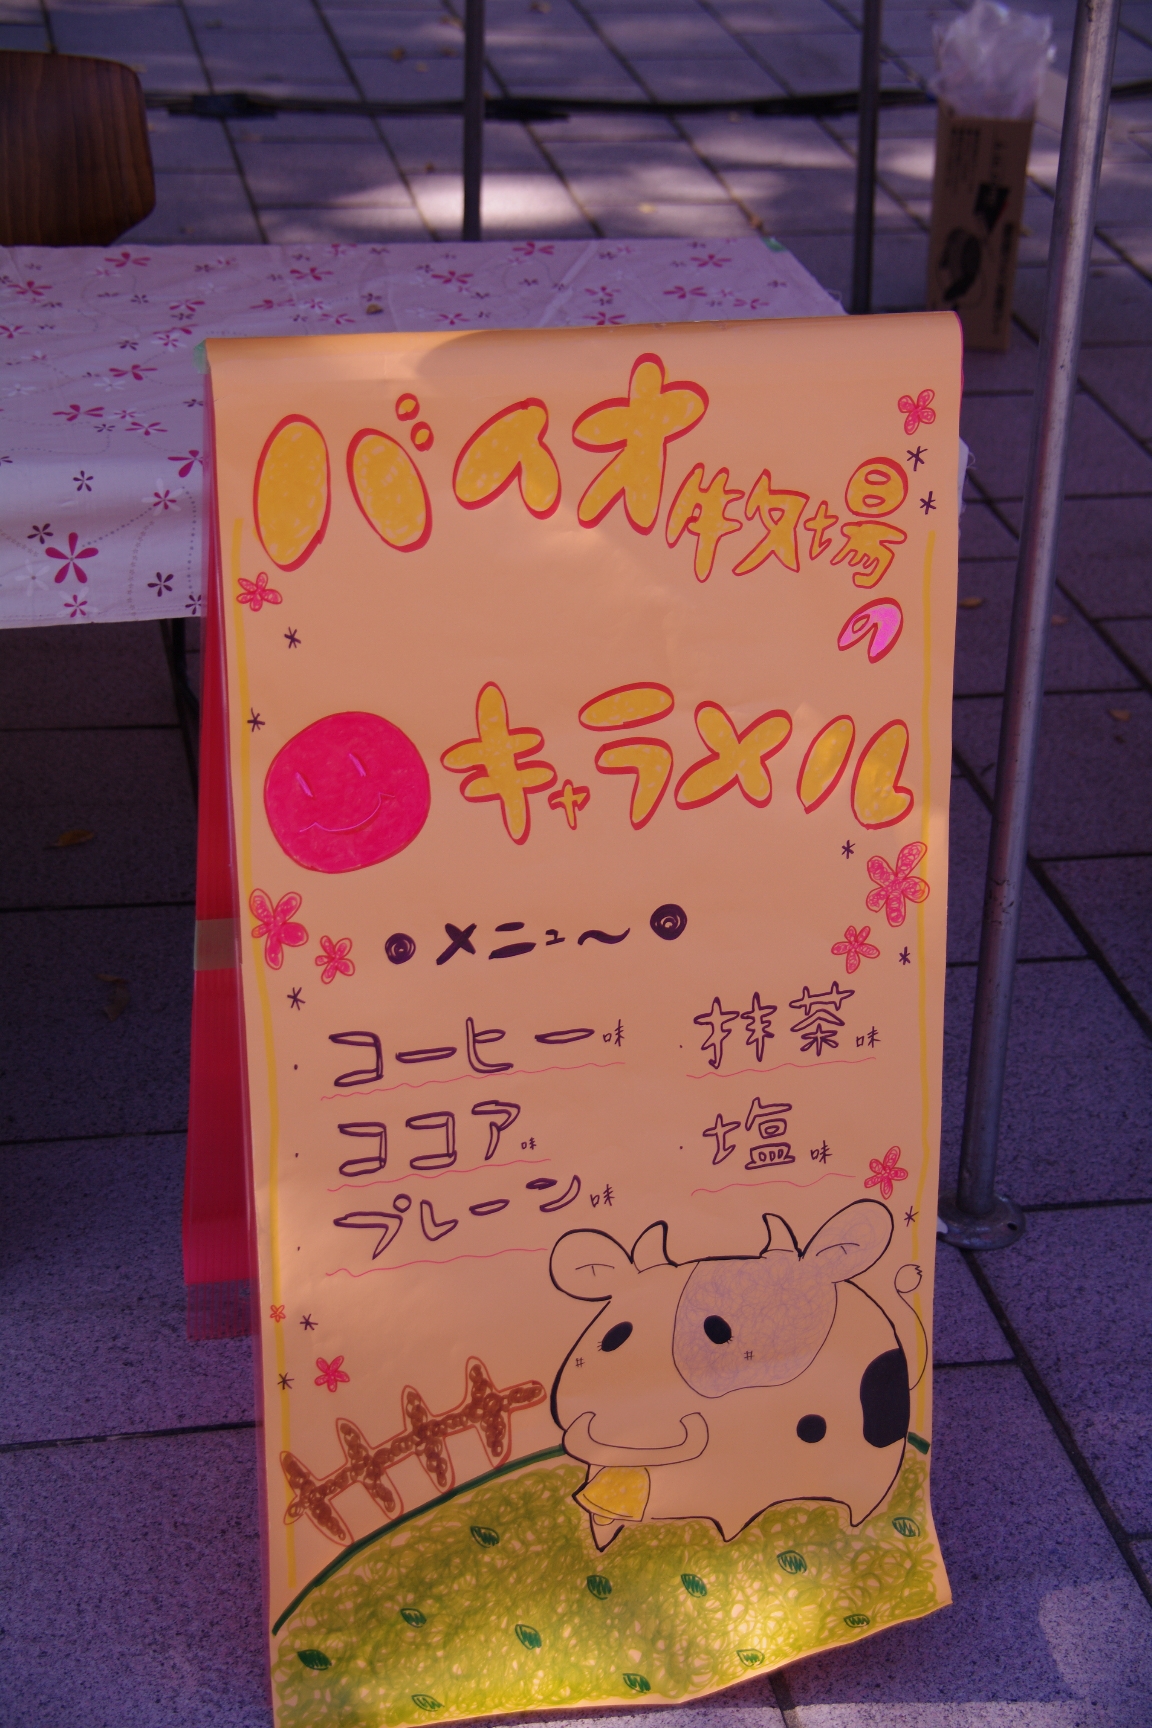 バイオ牧場
の
キャラメル
メニュ〜
・コーヒー味
・ココア味
・プレーン味
・抹茶味
・塩味